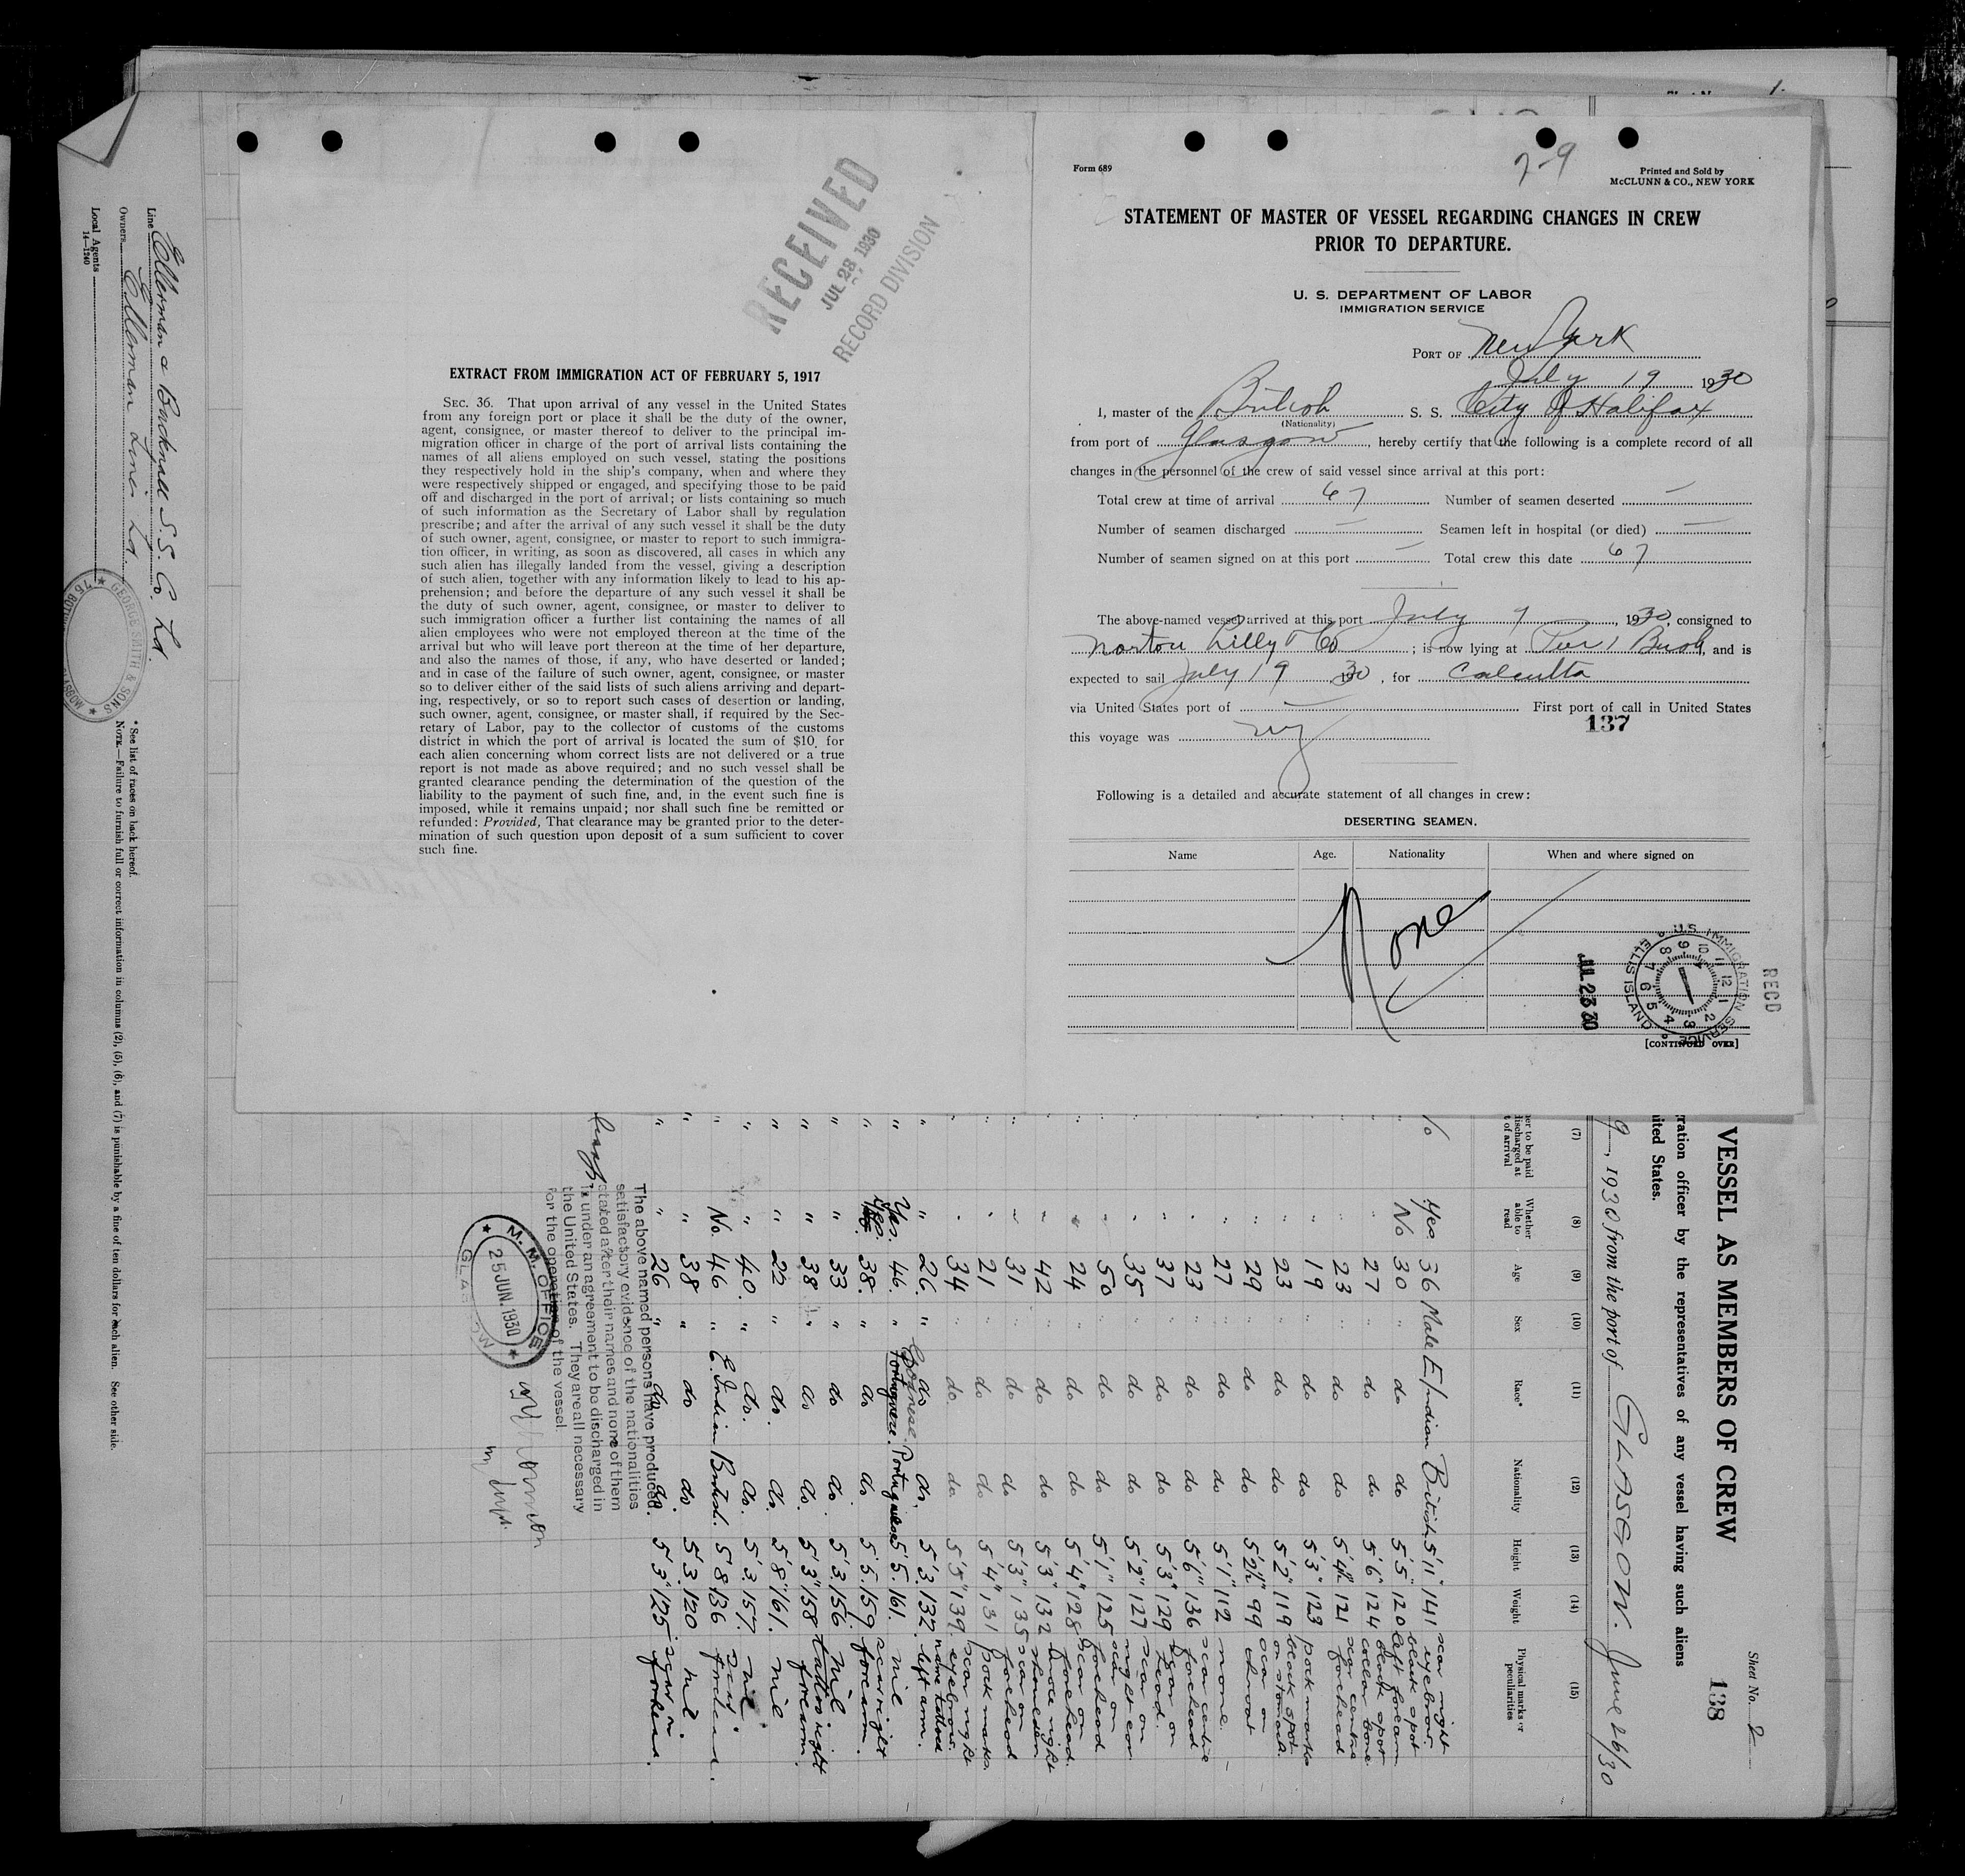 Form 689
7-9
Printed and Sold by
McCLUNN & CO., NEW YORK
STATEMENT OF MASTER OF VESSEL REGARDING CHANGES IN CREW
PRIOR TO DEPARTURE.
U. S. DEPARTMENT OF LABOR
IMMIGRATION SERVICE
PORT OF New York
July 19 1930
I, master of the British S. S. City of Halifax
(Nationality)
from port of Glasgow, hereby certify that the following is a complete record of all
changes in the personnel of the crew of said vessel since arrival at this port:
Total crew at time of arrival 67 Number of seamen deserted —
Number of seamen discharged — Seamen left in hospital (or died) —
Number of seamen signed on at this port — Total crew this date 67
The above-named vessel arrived at this port July 9, 1930, consigned to
Norton Lilly & Co; is now lying at Pier 1 Bush, and is
expected to sail July 19 30, for Calcutta
via United States port of — First port of call in United States
137
this voyage was NY
Following is a detailed and accurate statement of all changes in crew:
DESERTING SEAMEN.
Name Age. Nationality When and where signed on
None
RECD
U.S. IMMIGRATION SERVICE
ELLIS ISLAND
JUL 23 30
[CONTINUED OVER]
RECEIVED
JUL 28 1930
RECORD DIVISION
EXTRACT FROM IMMIGRATION ACT OF FEBRUARY 5, 1917
SEC. 36. That upon arrival of any vessel in the United States
from any foreign port or place it shall be the duty of the owner,
agent, consignee, or master thereof to deliver to the principal im-
migration officer in charge of the port of arrival lists containing the
names of all aliens employed on such vessel, stating the positions
they respectively hold in the ship's company, when and where they
were respectively shipped or engaged, and specifying those to be paid
off and discharged in the port of arrival; or lists containing so much
of such information as the Secretary of Labor shall by regulation
prescribe; and after the arrival of any such vessel it shall be the duty
of such owner, agent, consignee, or master to report to such immigra-
tion officer, in writing, as soon as discovered, all cases in which any
such alien has illegally landed from the vessel, giving a description
of such alien, together with any information likely to lead to his ap-
prehension; and before the departure of any such vessel it shall be
the duty of such owner, agent, consignee, or master to deliver to
such immigration officer a further list containing the names of all
alien employees who were not employed thereon at the time of the
arrival but who will leave port thereon at the time of her departure,
and also the names of those, if any, who have deserted or landed;
and in case of the failure of such owner, agent, consignee, or master
so to deliver either of the said lists of such aliens arriving and depart-
ing, respectively, or so to report such cases of desertion or landing,
such owner, agent, consignee, or master shall, if required by the Sec-
retary of Labor, pay to the collector of customs of the customs
district in which the port of arrival is located the sum of $10 for
each alien concerning whom correct lists are not delivered or a true
report is not made as above required; and no such vessel shall be
granted clearance pending the determination of the question of the
liability to the payment of such fine, and, in the event such fine is
imposed, while it remains unpaid; nor shall such fine be remitted or
refunded: Provided, That clearance may be granted prior to the deter-
mination of such question upon deposit of a sum sufficient to cover
such fine.
Sheet No. 2
138
VESSEL AS MEMBERS OF CREW
ration officer by the representatives of any vessel having such aliens
ited States.
9, 1930 from the port of GLASGOW. June 26/30
(7) (8) (9) (10) (11) (12) (13) (14) (15)
Whether able to read Age Sex Race* Nationality Height Weight Physical marks or peculiarities
Yes 36 Male E/ndian British 5'11" 141 scar right eyebrow.
No 30 " do do 5'5" 120 black spot left forearm
" 27 " do do 5'6" 124 black spot collar bone
" 23 " do do 5'4½ 121 scar centre forehead
" 19 " do do 5'3" 123 pock marks
" 23 " do do 5'2" 119 black spot on stomach.
" 29 " do do 5'2½ 99 scar on throat
" 27 " do do 5'1" 112 none.
" 23 " do do 5'6" 136 scar centre forehead
" 37 " do do 5'3" 129 scar on head.
" 35 " do do 5'2" 127 scar on right ear
" 50 " do do 5'1" 125 scar on forehead
" 24 " do do 5'4" 128 scar on forehead.
" 42 " do do 5'3" 132 right shoulder
" 31 " do do 5'3" 135 scar on forehead
" 21 " do do 5'4" 131 pock marks.
" 34 " do do. 5'5" 139. scar right eyebrow.
" 26. " do do. 5'3. 132. name tattooed left arm.
Yes. 46. " Portuguese. Portuguese 5'5. 161. nil
Yes. 38. " do do 5'5. 159 scar right forearm.
" 33 " do do. 5'3. 156 Nil
" 38 " do do. 5'3" 158 tattoo right forearm.
" 22 " do. do. 5'8" 161. nil
" 40. " do. do. 5'3. 157. nil
No. 46 " E.Indian British. 5 8. 136 scar forehead.
" 38 " do do. 5'3. 120 nil.
" 26 " do do. 5'3" 125 scar on forehead.
The above named persons have produced
satisfactory evidence of the nationalities
stated after their names and none of them
is under an agreement to be discharged in
the United States. They are all necessary
for the operation of the vessel.
M. M. OFFICE
25 JUN. 1930
GLASGOW
Line Ellerman & Bucknall S.S. Co. Ld.
Owners Ellerman Lines Ld.
Local Agents
14—1240
GEORGE SMITH & SONS
* See list of races on back hereof.
NOTE.—Failure to furnish full or correct information in columns (2), (5), (6), and (7) is punishable by a fine of ten dollars for each alien. See other side.